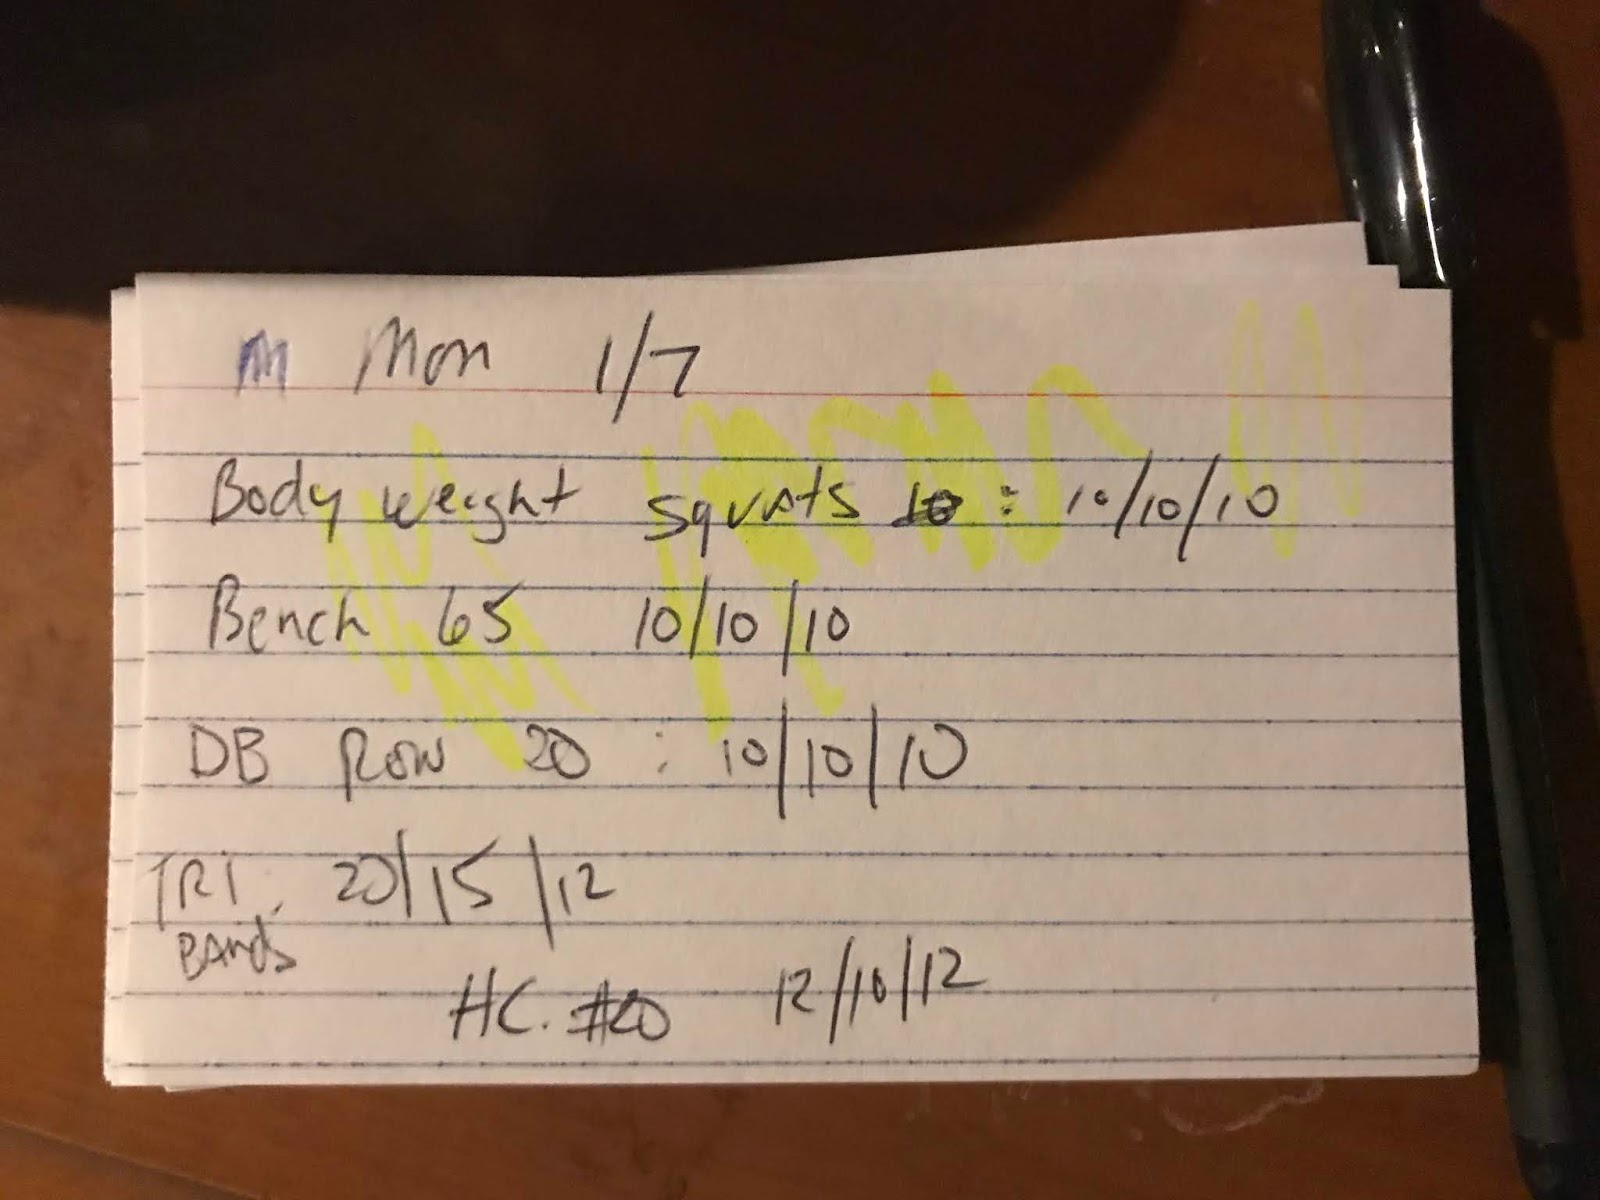 m Mon 1/7
Body weight squats : 10/10/10
Bench 65 10/10/10
DB Row 20 : 10/10/10
TRI. 20/15/12
BANds
HC. #20 12/10/12